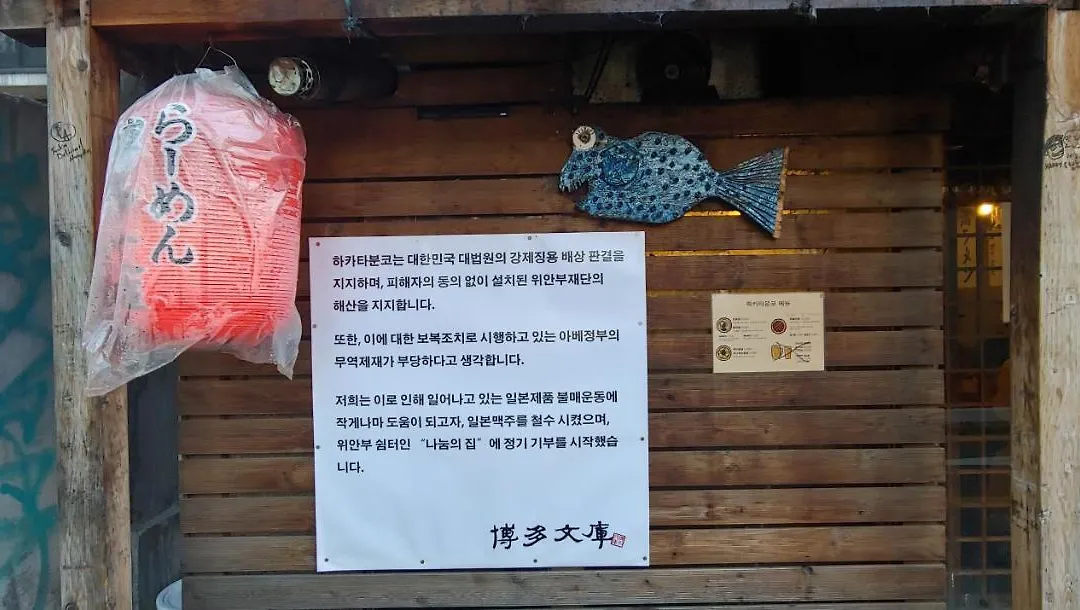 らーめん
하카타분코는 대한민국 대법원의 강제징용 배상 판결을
지지하며, 피해자의 동의 없이 설치된 위안부재단의
해산을 지지합니다.
또한, 이에 대한 보복조치로 시행하고 있는 아베정부의
무역제재가 부당하다고 생각합니다.
저희는 이로 인해 일어나고 있는 일본제품 불매운동에
작게나마 도움이 되고자, 일본맥주를 철수 시켰으며,
위안부 쉼터인 “나눔의 집” 에 정기 기부를 시작했습
니다.
博多文庫
하카타분코 메뉴